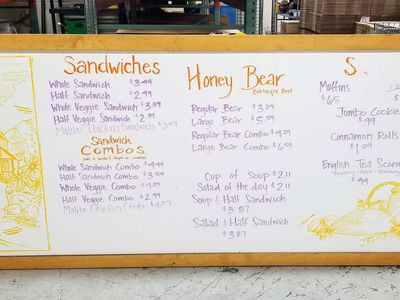 Sandwiches
Whole Sandwich $3.49
Half Sandwich $2.49
Whole Veggie Sandwich $3.39
Half Veggie Sandwich $2.39
Malibu Chicken Sandwich $3.89
Sandwich
Combos
Whole Sandwich Combo $4.49
Half Sandwich Combo $3.59
Whole Veggie Combo $4.29
Half Veggie Combo
Malibu Chicken Combo
Honey Bear
Barbeque Beef
Regular Bear $3.29
Large Bear $5.59
Regular Bear Combo $4.29
Large Bear Combo $6.59
Cup of Soup $2.11
Salad of the day $2.11
Soup & Half Sandwich
$3.87
Salad & Half Sandwich
$3.87
S
Muffins
$.65
Jumbo Cookie
$.99
Cinnamon Rolls
$1.09
English Tea Scone
$.99